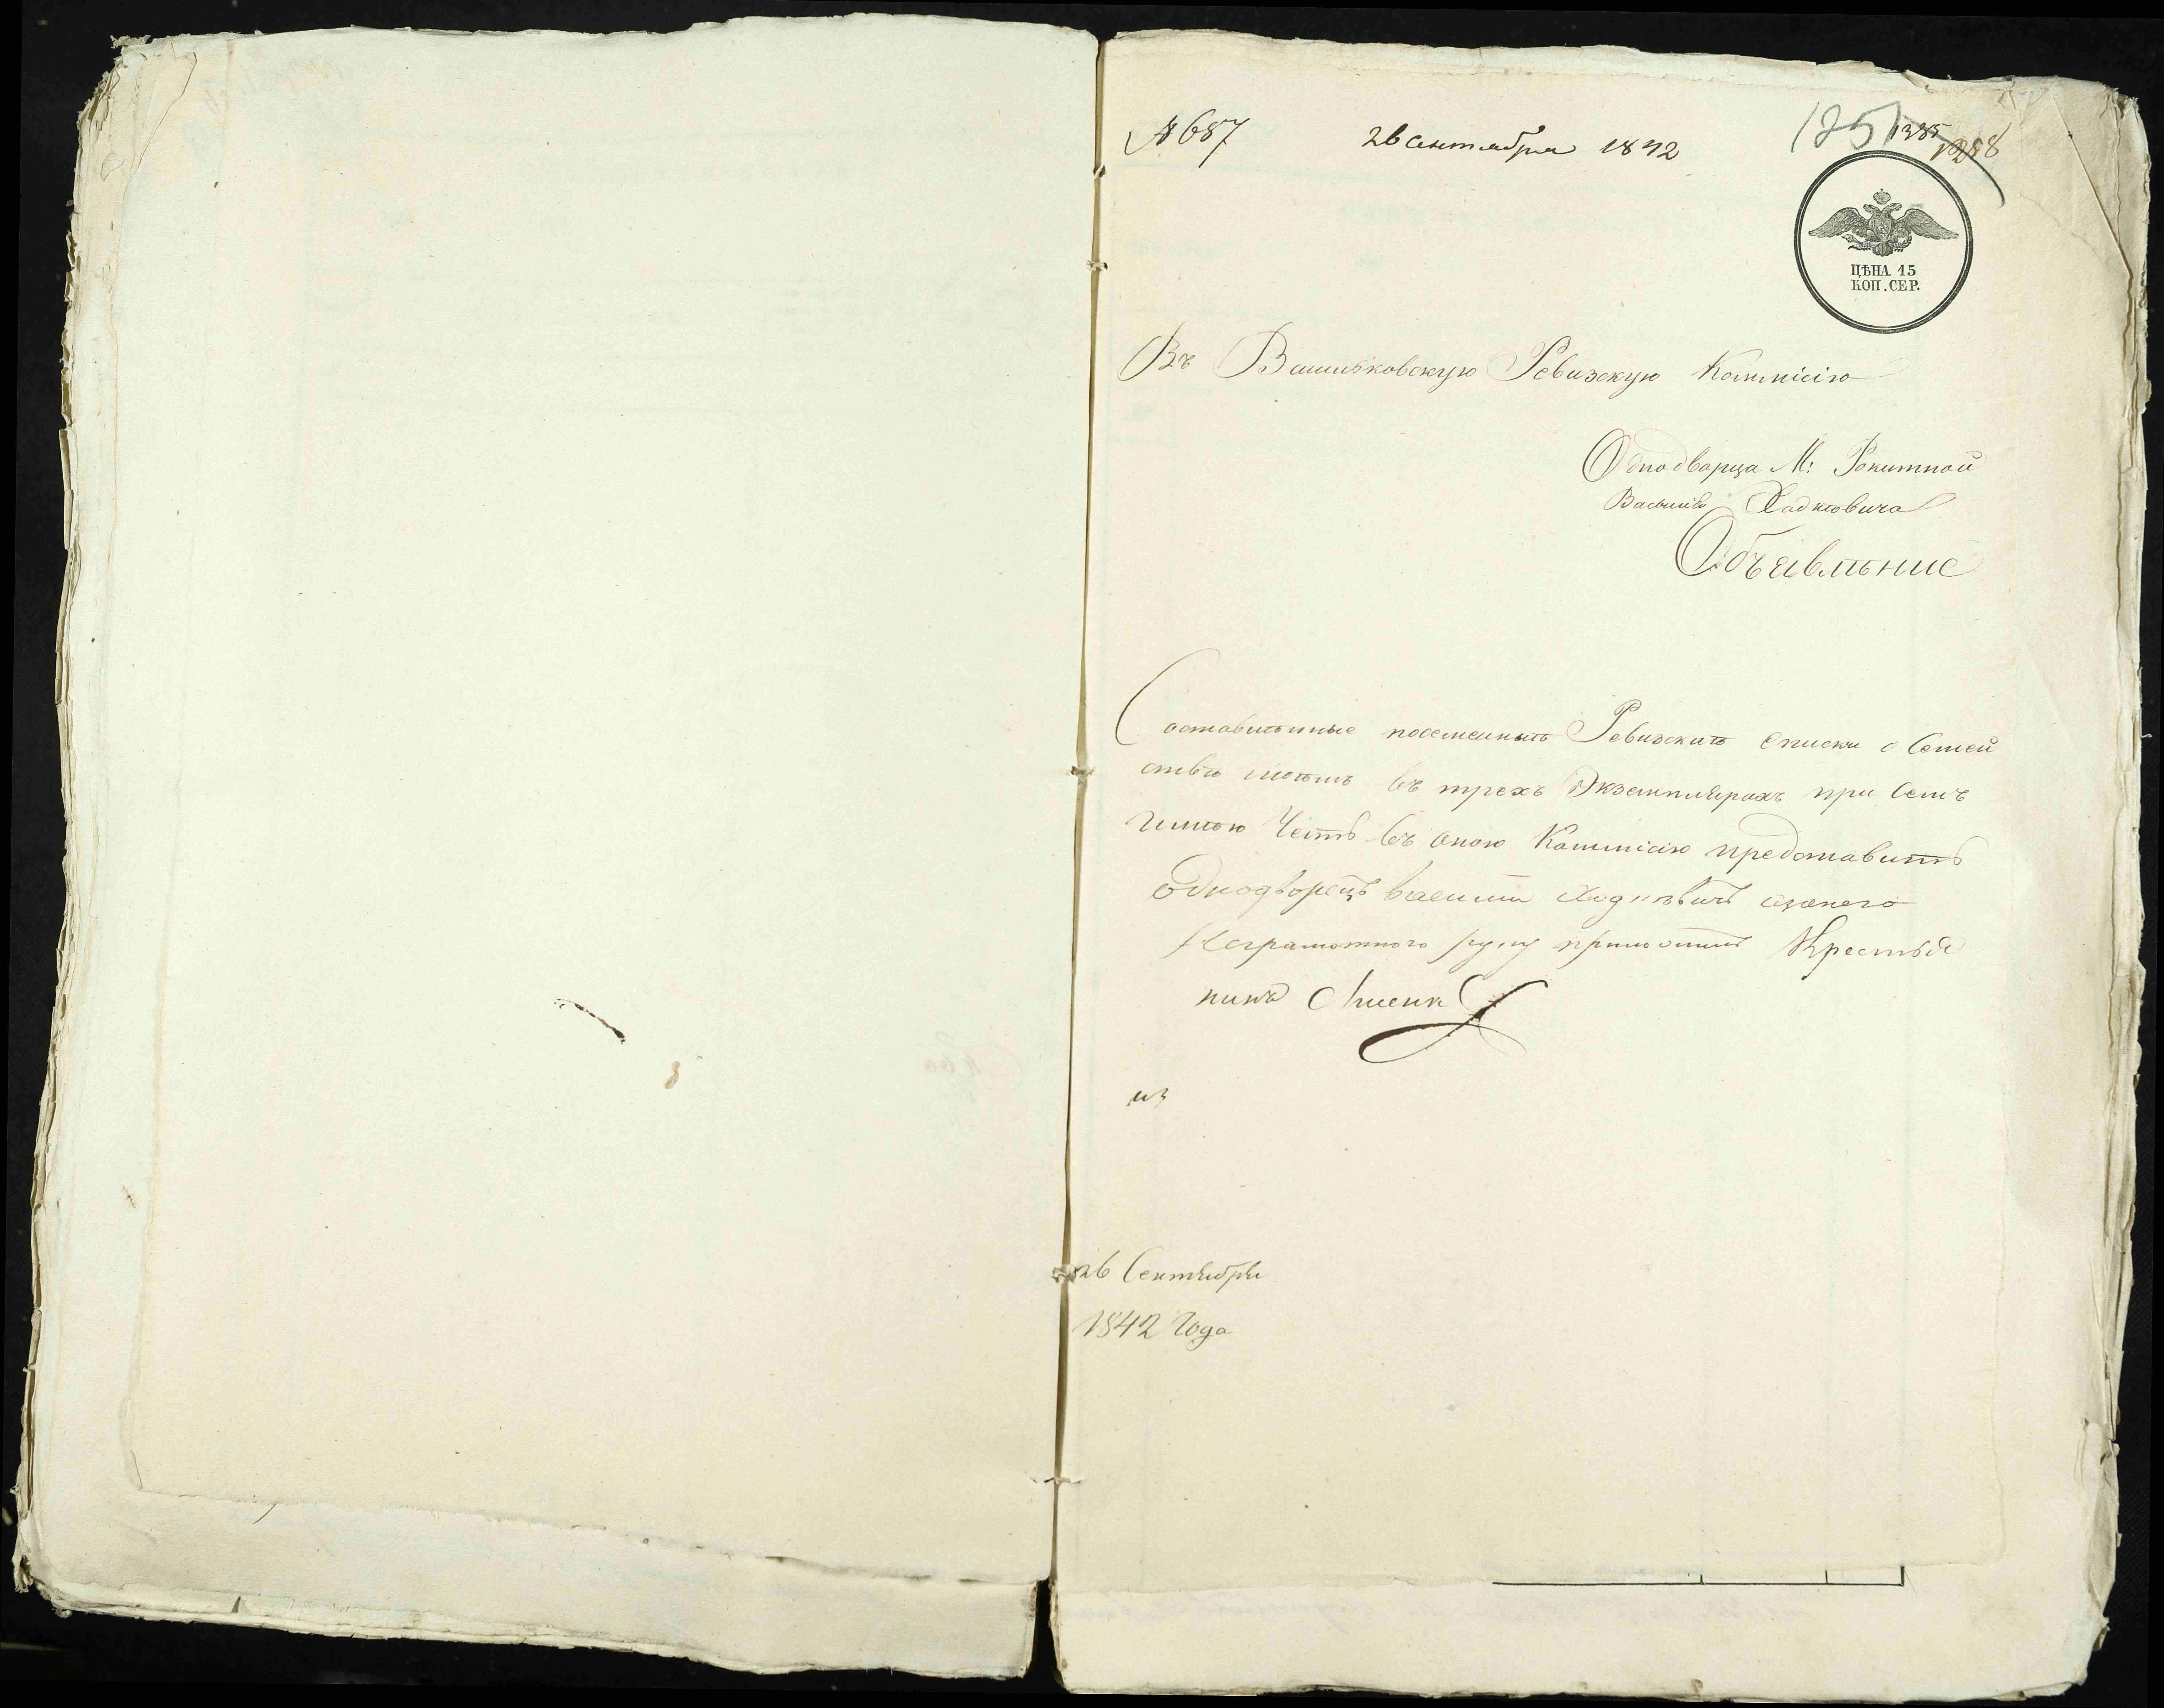 № 687 26 Сентября 1842
1251 1385 1288
ЦѢНА 15
КОП. СЕР.
Въ Васильковскую Ревизскую Коммісію
Однодворца М: Рокитной
Васылія Ходкевича
Объявленіе
Составленные посемейныѣ Ревизскиѣ списки о Семей
ствѣ моемъ въ трехъ Экземплярахъ при семъ
имѣю Честь въ оною Коммисію представить
Однодворецъ василій Ходкевичъ азанего
Неграмотного руку приложилъ Крестья
нинъ
26 Сентября
1842 Года